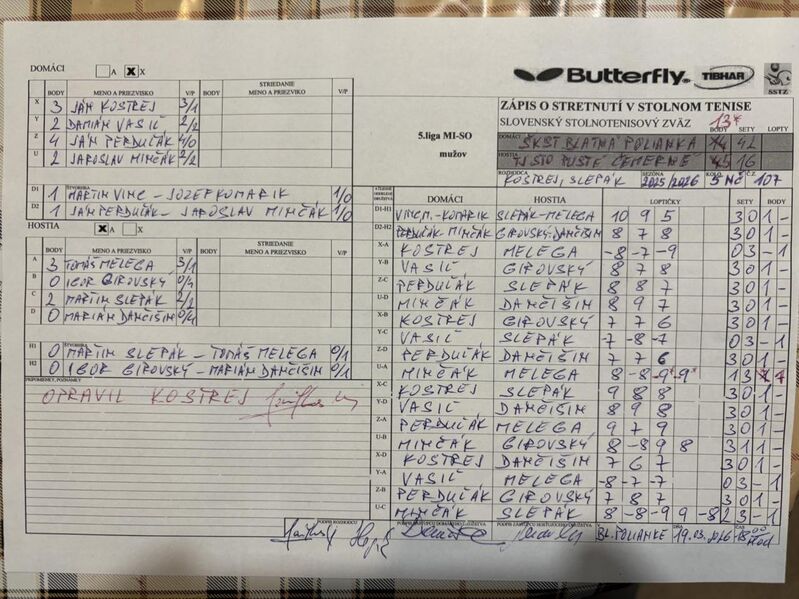 DOMÁCI A X X
Butterfly TIBHAR SSTZ
BODY MENO A PRIEZVISKO V/P BODY STRIEDANIE MENO A PRIEZVISKO V/P
X 3 JÁN KOSTREJ 3/1
Y 2 DAMIÁN VASIĽ 2/2
Z 4 JÁN PERDUĽÁK 4/0
U 2 JAROSLAV MINČÁK 2/2
5.liga MI-SO
mužov
ZÁPIS O STRETNUTÍ V STOLNOM TENISE
SLOVENSKÝ STOLNOTENISOVÝ ZVÄZ 13* BODY SETY LOPTY
DOMÁCI ŠKST BLATNÁ POLIANKA 14 42
HOSTIA TJ STO PUSTÉ ČEMERNÉ 45 16
ROZHODCA KOSTREJ, SLEPÁK SEZÓNA 2025/2026 KOLO 5 NČ Č.Z. 107
D1 1 MARTIN VINC - JOZEF KOMARIK 1/0
D2 1 JÁN PERDUĽÁK - JAROSLAV MINČÁK 1/0
HOSTIA X A X
BODY MENO A PRIEZVISKO V/P BODY STRIEDANIE MENO A PRIEZVISKO V/P
A 3 TOMÁŠ MELEGA 3/1
B 0 IGOR GIROVSKÝ 0/4
C 2 MARTIN SLEPÁK 2/2
D 0 MARIÁN DANČIŠIN 0/4
H1 0 MARTIN SLEPÁK - TOMÁŠ MELEGA 0/1
H2 0 IGOR GIROVSKÝ - MARIÁN DANČIŠIN 0/1
PRIPOMIENKY, POZNÁMKY
OPRAVIL KOSTREJ
DOMÁCI HOSTIA LOPTIČKY SETY BODY
D1-H1 VINC M.-KOMARIK SLEPÁK-MELEGA 10 9 5 3 0 1 -
D2-H2 PERDUĽÁK-MINČÁK GIROVSKÝ-DANČIŠIN 8 7 8 3 0 1 -
X-A KOSTREJ MELEGA -8 -7 -9 0 3 - 1
Y-B VASIĽ GIROVSKÝ 8 7 8 3 0 1 -
Z-C PERDUĽÁK SLEPÁK 8 8 7 3 0 1 -
U-D MINČÁK DANČIŠIN 8 9 7 3 0 1 -
X-B KOSTREJ GIROVSKÝ 7 7 6 3 0 1 -
Y-C VASIĽ SLEPÁK -7 -8 -7 0 3 - 1
Z-D PERDUĽÁK DANČIŠIN 7 7 6 3 0 1 -
U-A MINČÁK MELEGA 8 -8 -9* -9* 1 3
X-C KOSTREJ SLEPÁK 9 8 8 3 0 1 -
Y-D VASIĽ DANČIŠIN 8 9 8 3 0 1 -
Z-A PERDUĽÁK MELEGA 9 7 9 3 0 1 -
U-B MINČÁK GIROVSKÝ 8 -8 9 8 3 1 1 -
X-D KOSTREJ DANČIŠIN 7 6 7 3 0 1 -
Y-A VASIĽ MELEGA -8 -7 -7 0 3 - 1
Z-B PERDUĽÁK GIROVSKÝ 7 8 7 3 0 1 -
U-C MINČÁK SLEPÁK 8 -8 -9 9 -8 2 3 - 1
PODPIS ROZHODCU PODPIS ZÁSTUPCU DOMÁCEHO DRUŽSTVA PODPIS ZÁSTUPCU HOSŤUJÚCEHO DRUŽSTVA V BL. POLIANKE DŇA 19.03.2026 ČAS 18:00 HOD